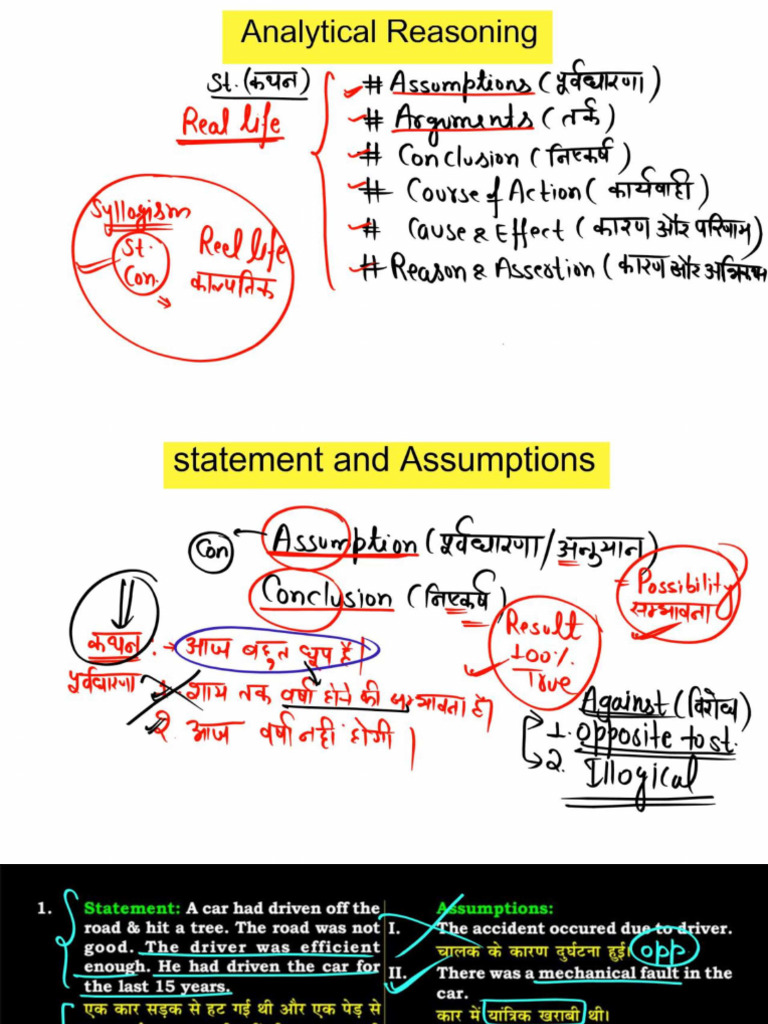 Analytical Reasoning
St. (कथन)
# Assumptions (पूर्वधारणा)
Real life
# Arguments (तर्क)
# Conclusion (निष्कर्ष)
# Course of Action (कार्यवाही)
# Cause & Effect (कारण और परिणाम)
# Reason & Assertion (कारण और
Syllogism
St. Reel life
Con. काल्पनिक
statement and Assumptions
Con Assumption (पूर्वधारणा/अनुमान)
Conclusion (निष्कर्ष)
= Possibility
सम्भावना
Result
100%
True
कथन :→ आज बहुत धूप है।
पूर्वधारणा 1. शाम तक वर्षा होने की सम्भावना है।
2. आज वर्षा नहीं होगी।
Against (विरोध)
1. Opposite to st.
2. Illogical
1. Statement: A car had driven off the
road & hit a tree. The road was not
good. The driver was efficient
enough. He had driven the car for
the last 15 years.
एक कार सड़क से हट गई थी और एक पेड़ से
Assumptions:
I. The accident occured due to driver.
चालक के कारण दुर्घटना हुई। opp
II. There was a mechanical fault in the
car.
कार में यांत्रिक खराबी थी।